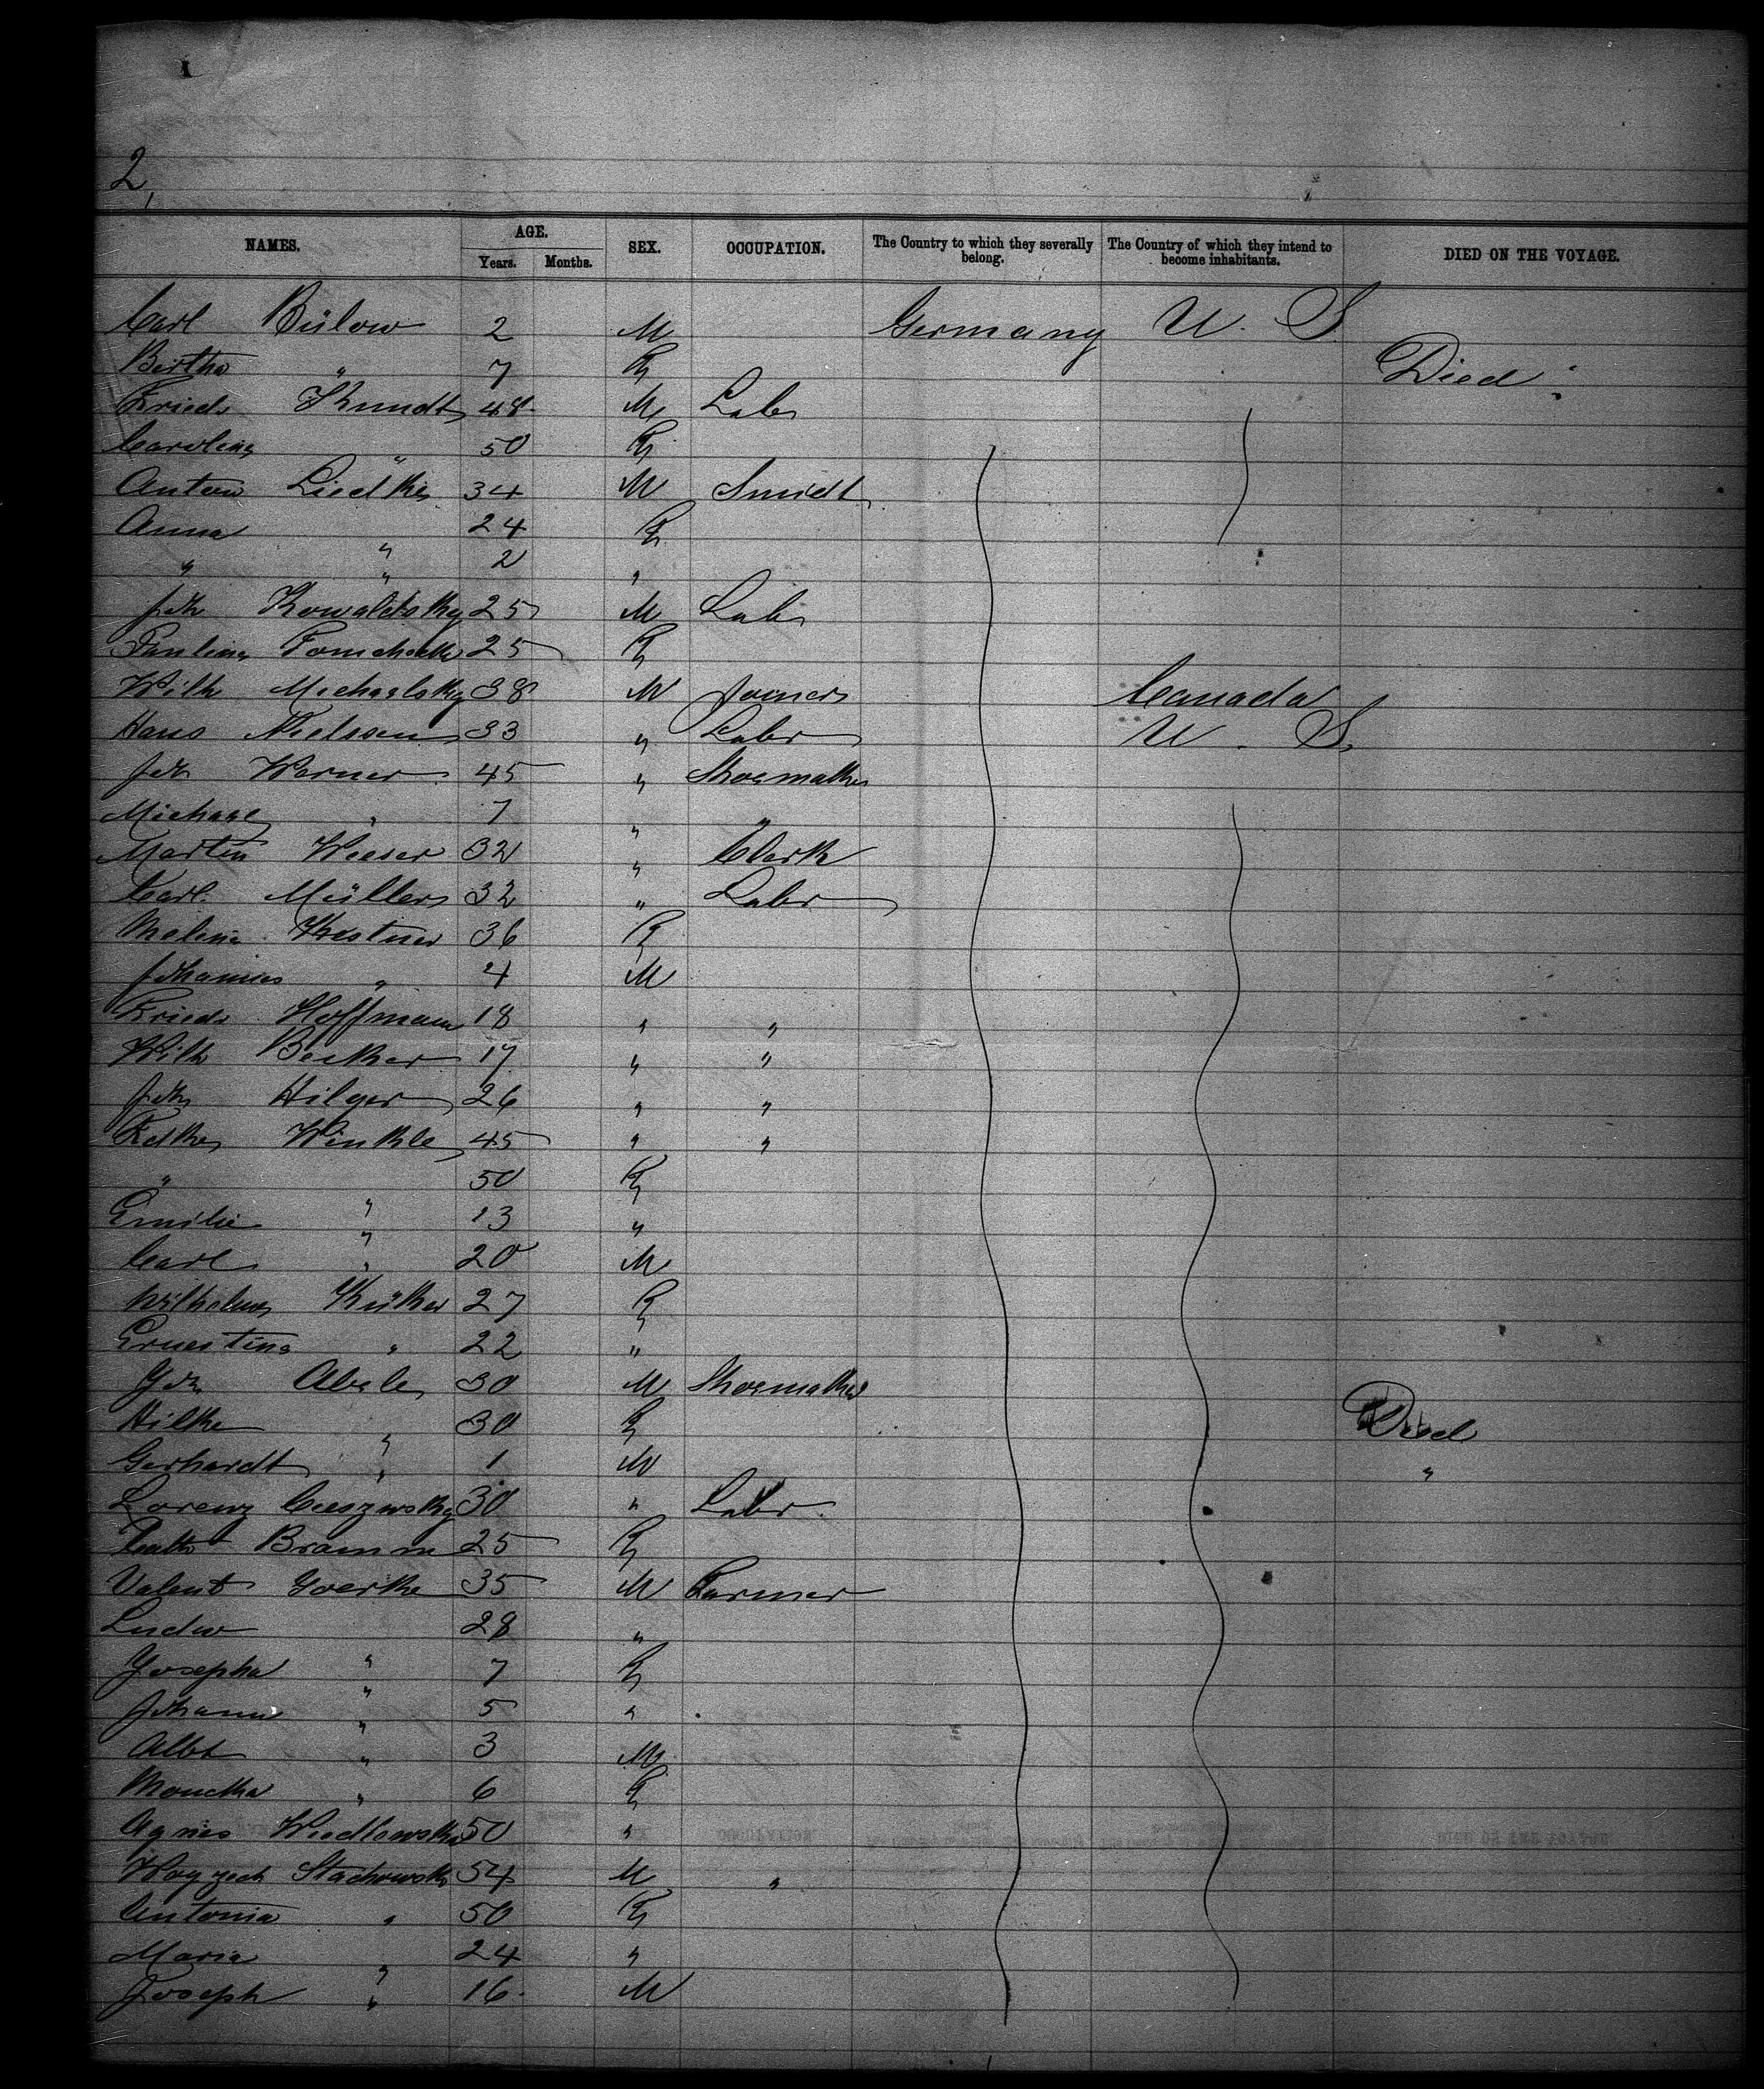 2,
NAMES. AGE. SEX. OCCUPATION. The Country to which they severally belong. The Country of which they intend to become inhabitants. DIED ON THE VOYAGE.
Years. Months.
Carl Bülow 2 M Germany U. S.
Bertha " 7 F Died
Friedr Kundt 48 M Labr
Caroline " 50 F
Anton Liedtke 34 M Smidt
Anna " 24 F
" " 2 "
Joh 25 M Labr
Pauline 25 F
Wilh Michaelsky 38 M Joiner Canada
Hans Nielssen 33 " Labr U. S.
Joh Werner 45 " Shoemaker
Michael " 7 " "
Martin Weeser 32 " Clerk
Carl Müller 32 " Labr
Malene Kestner 36 F
Johannes " 4 M
Friedr Hoffmann 18 " "
Wilh Becker 17 " "
Joh Hilger 26 " "
Winkle 45 " "
" " 50 F
Emilie " 13 "
Carl " 20 M
Wilhelm Küker 27 F
Ernestine " 22 "
Joh Abele 30 M Shoemaker
Hilke " 30 F Died
Gerhardt " 1 M "
Lorenz 30 " Labr
Cath Bramm 25 F
Valent Goerke 35 M Farmer
Ludw " 28 "
Josepha " 7 F
Johann " 5 "
Albt " 3 M
" 6 F
Agnes 50 "
Stachowsk 54 M "
Antonia " 50 F
Maria " 24 "
Joseph " 16 M